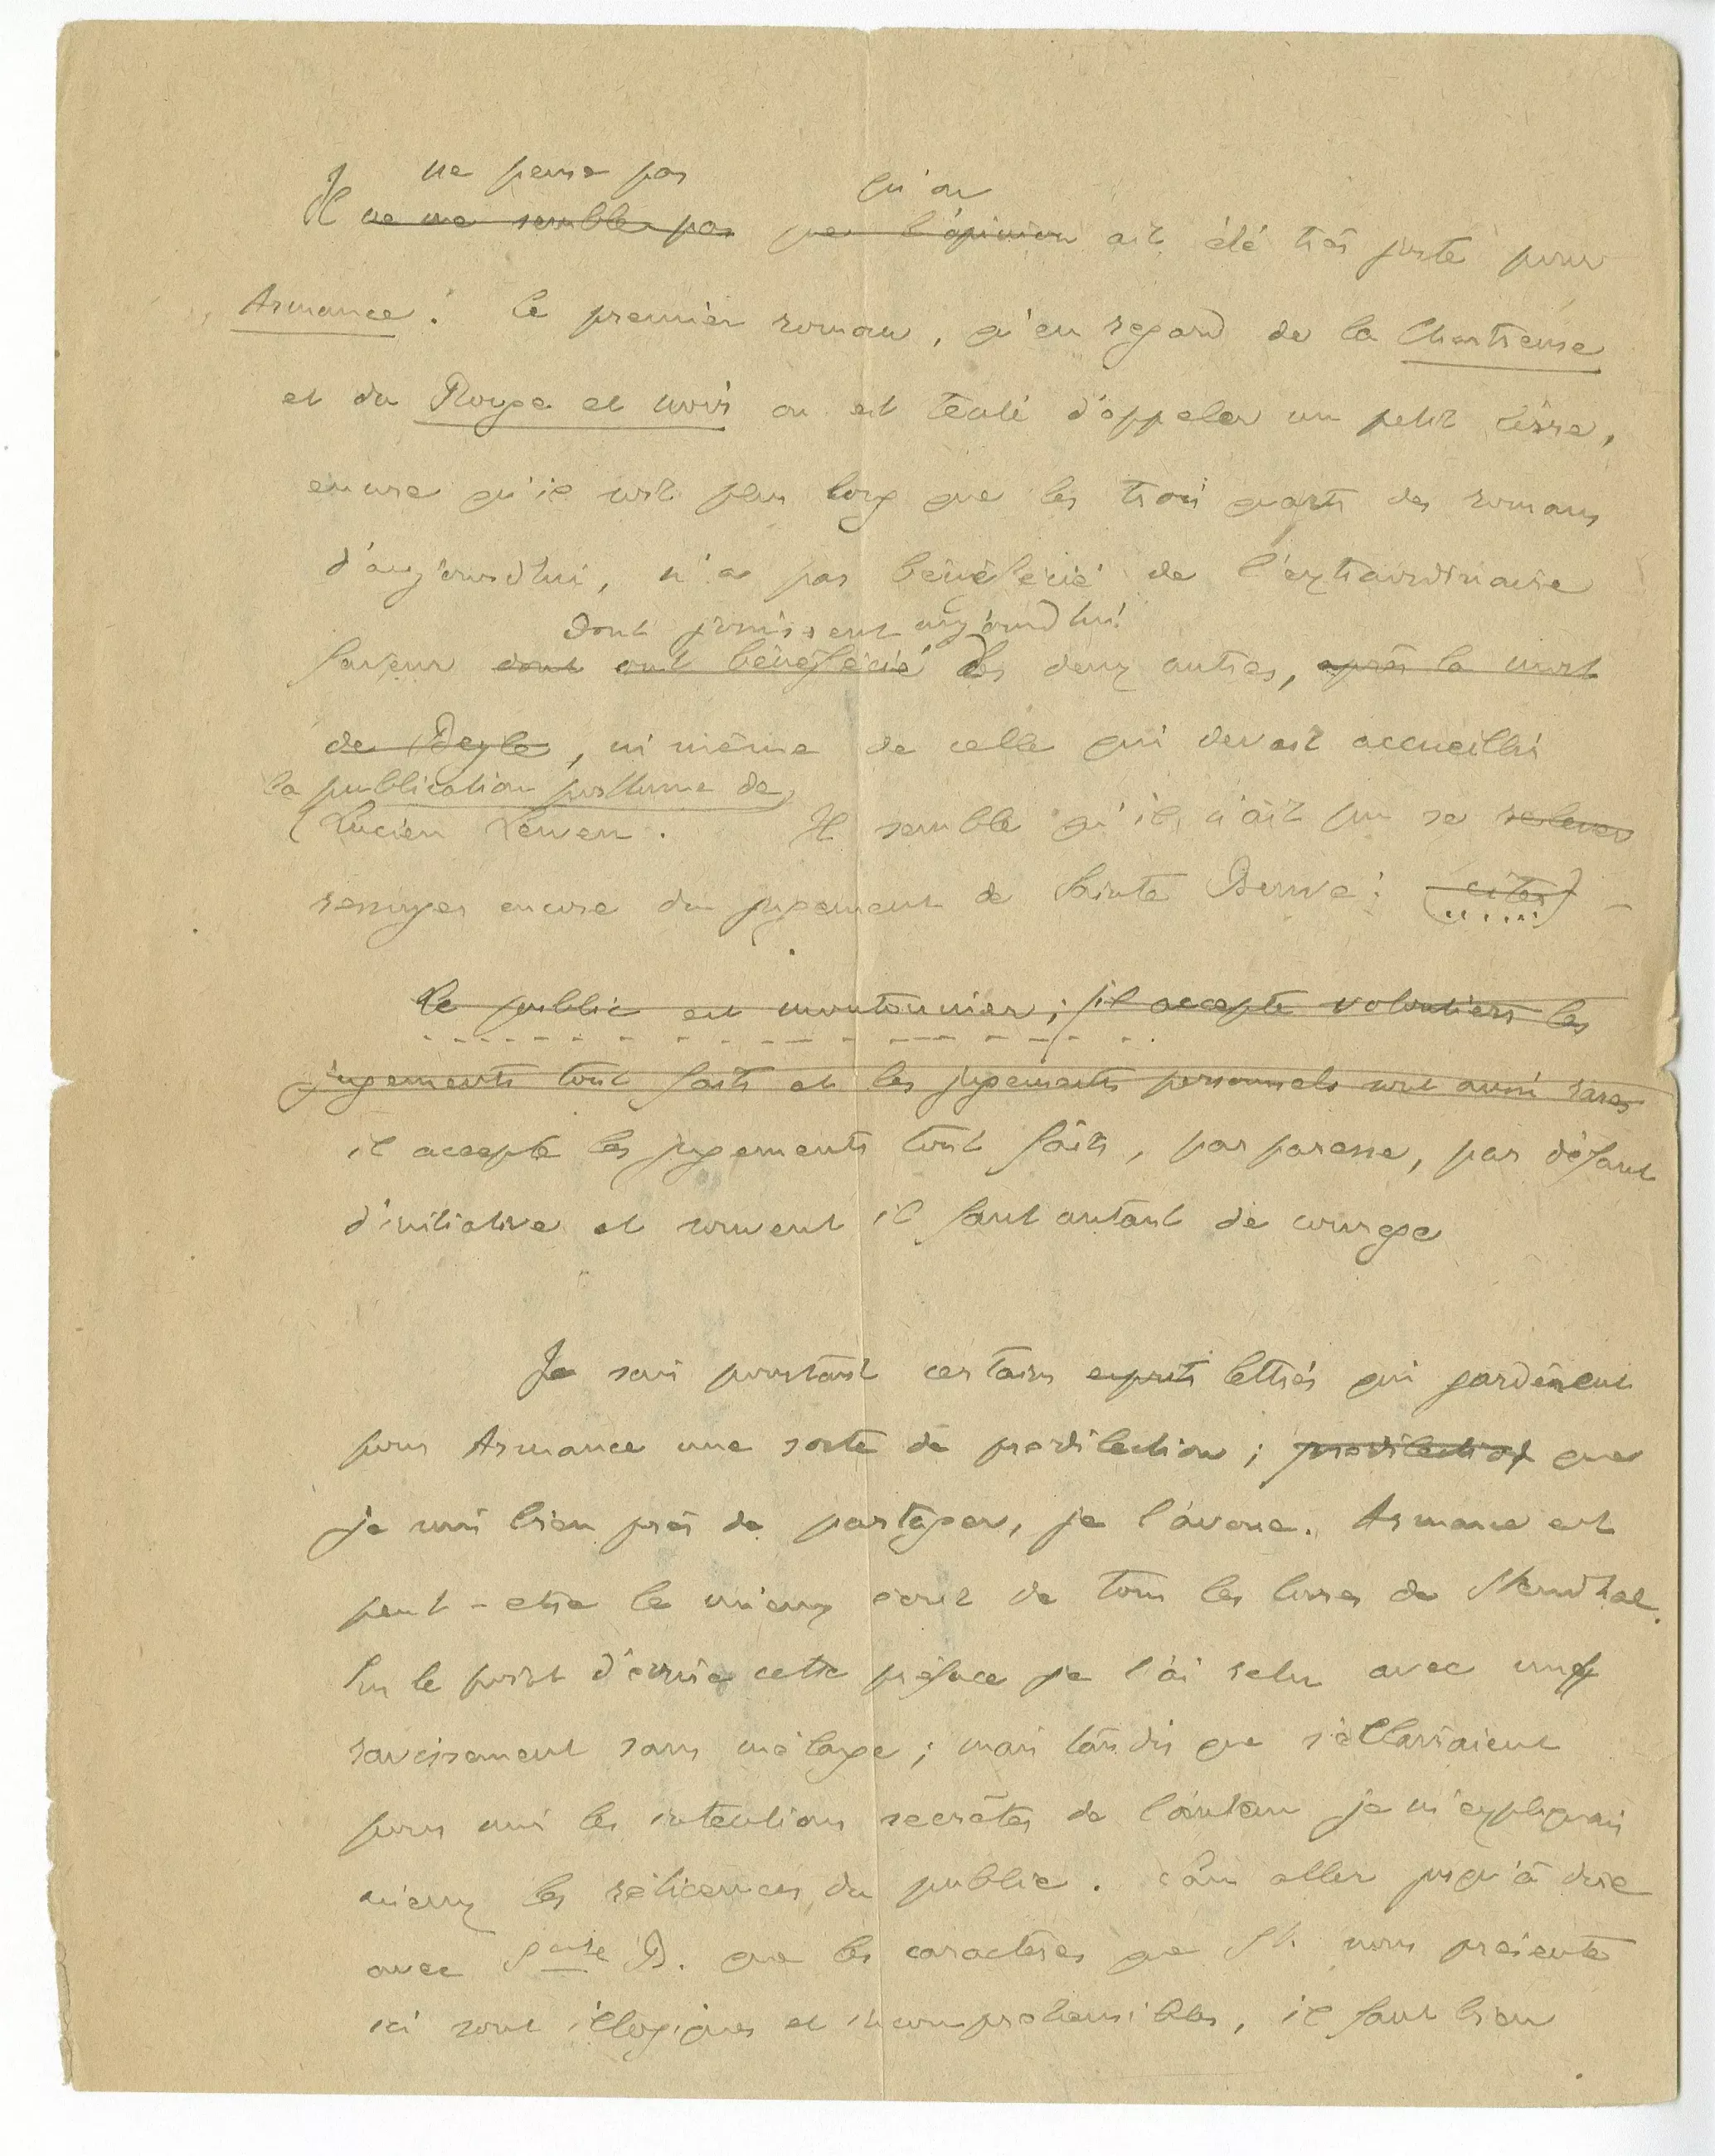 Je ne pense pas qu'on
Il ne me semble pas que l'opinion ait été très juste pour
Armance. Ce premier roman, qu'en regard de la Chartreuse
et du Rouge et noir on est tenté d'appeler un petit livre,
encore qu'il soit plus long que les trois quarts des romans
d'aujourd'hui, n'a pas bénéficié de l'extraordinaire
dont jouissent aujourd'hui
faveur dont ont bénéficié les deux autres, après la mort
de Beyle, ni même de celle qui devait accueillir
la publication posthume de
Lucien Leuwen. Il semble qu'il n'ait pu se relever
revenger encore du jugement de Sainte Beuve : (citer) -
Le public est moutonnier ; il accepte volontiers les
jugements tout faits et les jugements personnels sont aussi rares
il accepte les jugements tout faits, par paresse, par défaut
d'initiative et souvent il faut autant de courage
Je sais pourtant certains esprits lettrés qui gardèrent
pour Armance une sorte de predilection ; predilection que
je suis bien près de partager, je l'avoue. Armance est
peut-etre le mieux écrit de tous les livres de Stendhal.
Sur le point d'écrire cette préface je l'ai relu avec un
ravissement sans mélange ; mais tandis que s'éclairaient
pour moi les intentions secrètes de l'auteur je m'expliquais
mieux les réticences du public. Sans aller jusqu'à dire
avec Sainte B. que les caractères que St. nous présente
ici sont illogiques et incomprehensibles, il faut bien